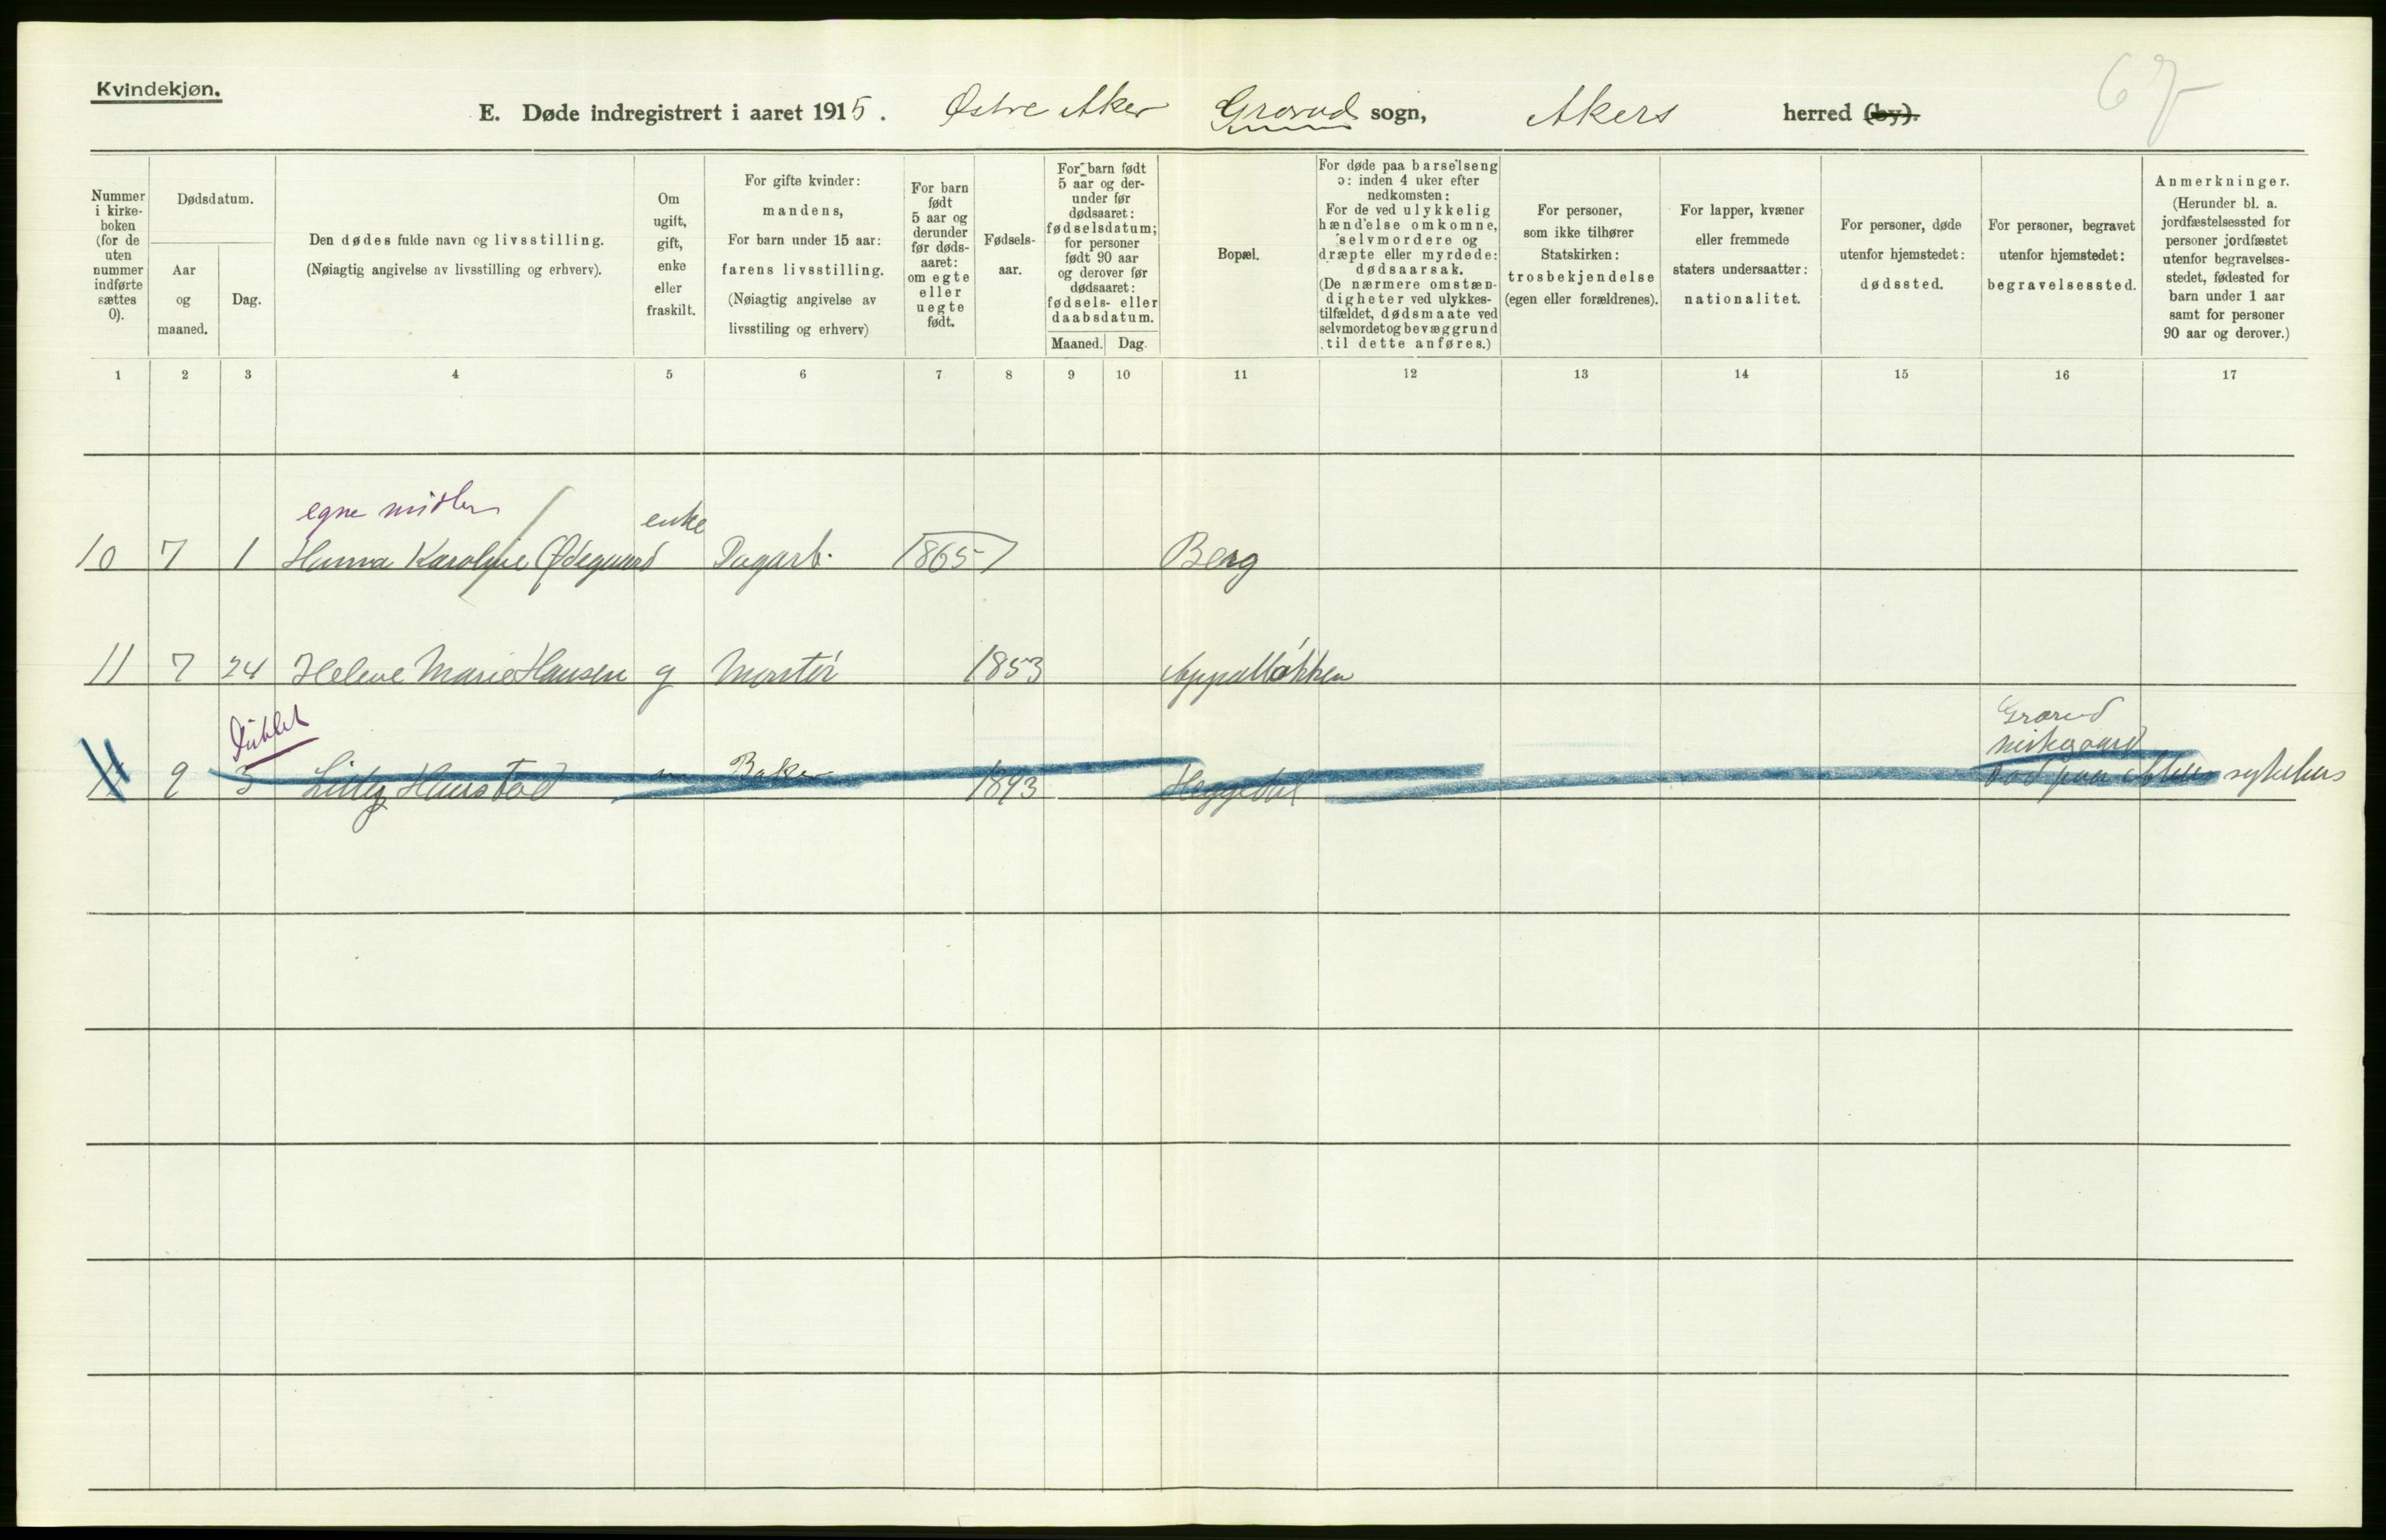 Kvindekjøn.
E. Døde indregistrert i aaret 1915. Østre Aker Grorud sogn, Akers herred (by).
67
Nummer i kirke-boken (for de uten nummer indførte sættes 0).
Dødsdatum.
Aar og maaned.
Dag.
Den dødes fulde navn og livsstilling.
(Nøiagtig angivelse av livsstilling og erhverv).
Om ugift, gift, enke eller fraskilt.
For gifte kvinder: mandens,
For barn under 15 aar: farens livsstilling.
(Nøiagtig angivelse av livsstiling og erhverv)
For barn født 5 aar og derunder før døds-aaret: om egte eller uegte født.
Fødsels-aar.
For barn født 5 aar og der-under før dødsaaret: fødselsdatum; for personer født 90 aar og derover før dødsaaret: fødsels- eller daabsdatum.
Maaned. Dag.
Bopæl.
For døde paa barselseng ɔ: inden 4 uker efter nedkomsten:
For de ved ulykkelig hændelse omkomne, selvmordere og dræpte eller myrdede: dødsaarsak.
(De nærmere omstæn-digheter ved ulykkes-tilfældet, dødsmaate ved selvmordet og bevæggrund til dette anføres.)
For personer, som ikke tilhører Statskirken: trosbekjendelse (egen eller forældrenes).
For lapper, kvæner eller fremmede staters undersaatter: nationalitet.
For personer, døde utenfor hjemstedet: dødssted.
For personer, begravet utenfor hjemstedet: begravelsessted.
Anmerkninger.
(Herunder bl. a. jordfæstelsessted for personer jordfæstet utenfor begravelses-stedet, fødested for barn under 1 aar samt for personer 90 aar og derover.)
1 2 3 4 5 6 7 8 9 10 11 12 13 14 15 16 17
egne midler
enke
10 7 1 Hanna Karoline Ødegaard Dagarb. 1865 Berg
11 7 24 Helene Marie Hansen g Montör 1853 Appalløkken
Dublet
Grorud
kirkegaard
9 5 Lilly Haustad Baker 1893 Heggedal Død paa Akers sykehus